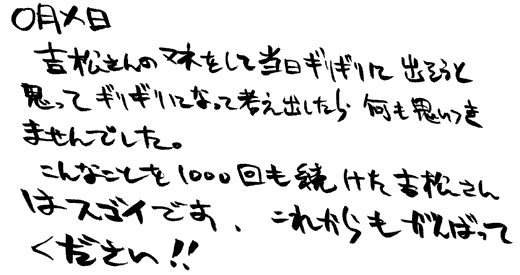 〇月×日
吉松さんのマネをして当日ギリギリに出そうと
思ってギリギリになって考え出したら何も思いつき
ませんでした。
こんなことを1000回も続けた吉松さん
はスゴイです、これからもがんばって
ください!!